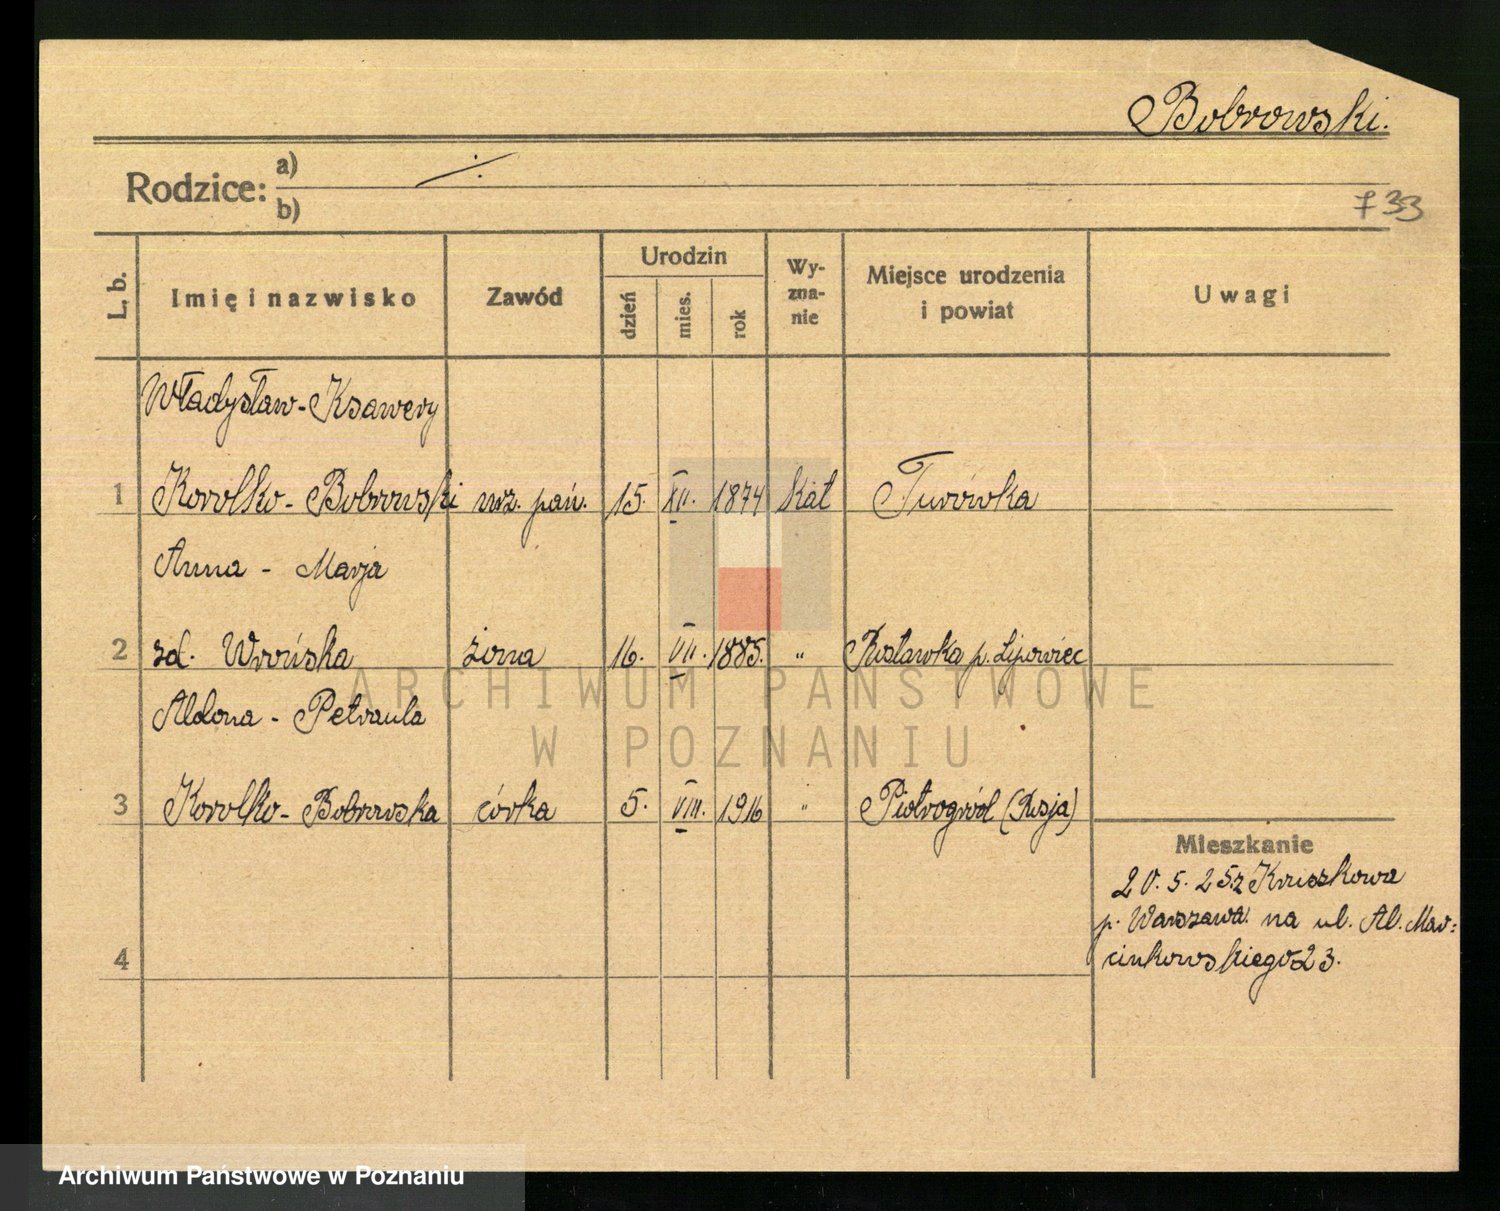 Bobrowski.
Rodzice: a) ·/·
b)
733
L. b. Imię i nazwisko Zawód Urodzin dzień mies. rok Wy-zna-nie Miejsce urodzenia i powiat Uwagi
Władysław-Ksawery
1 Korolko-Bobrowski urz. pań. 15. XII. 1874 kat Turówka
Anna - Marja
2 zd. Wrońska żona 16. VII. 1885. „ Rusławka p. Lipowiec
Aldona - Petraula
3 Korolko-Bobrowska córka 5. VIII. 1916 „ Piotrogród (Rosja)
Mieszkanie
20. 5. 25 z
p. Warszawa. na ul. Al. Mar=
4 cinkowskiego 23.
ARCHIWUM PAŃSTWOWE
W POZNANIU
Archiwum Państwowe w Poznaniu